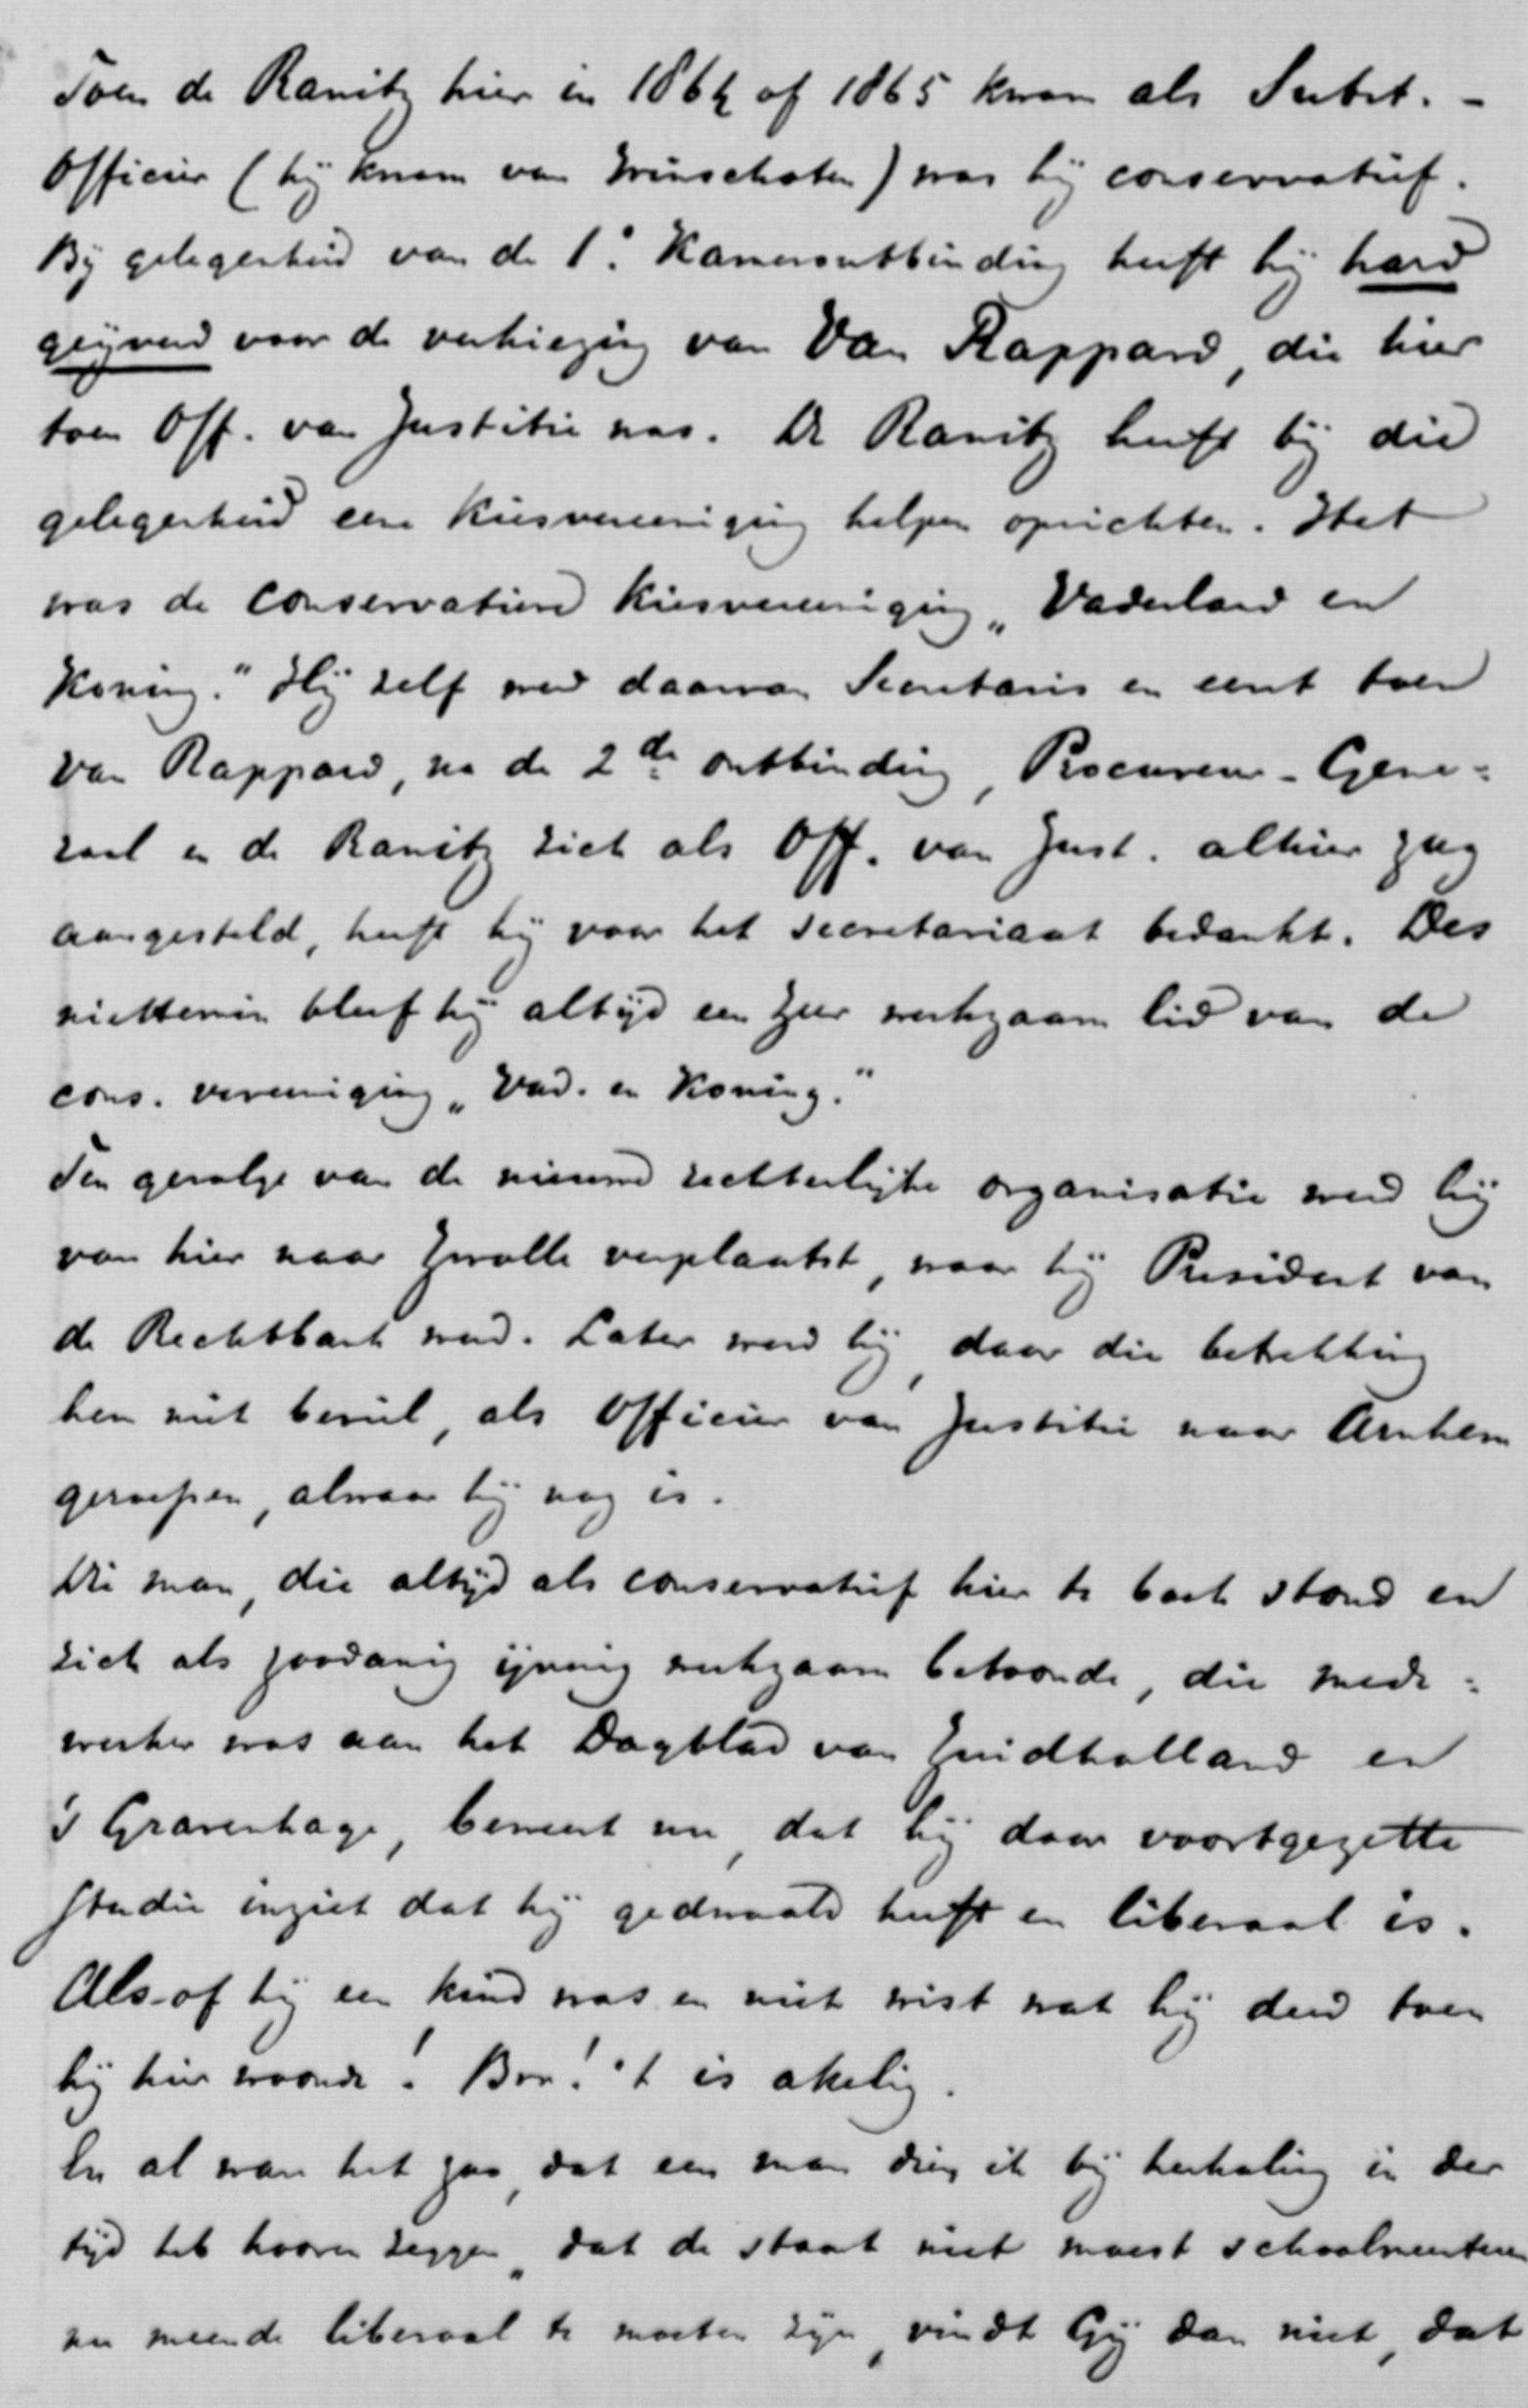 Toen de Ranitz hier in 1864 of 1865 kwam als Subst. -
Officier (hij kwam van Winschoten) was hij conservatief.
Bij gelegenheid van de 1e Kamerontbinding heeft hij hard
geijverd voor de verkiezing van Van Rappard, die hier
toen Off. van Justitie was. De Ranitz heeft bij die
gelegenheid eene kiesvereeniging helpen oprichten. Het
was de conservatieve kiesvereeniging „Vaderland en
Koning." Hij zelf werd daarvan Secretaris en eerst toen
van Rappard, na de 2de ontbinding, Procureur-Gene=
raal en de Ranitz zich als Off. van Just. alhier zag
aangesteld, heeft hij voor het secretariaat bedankt. Des
niettemin bleef hij altijd een zeer werkzaam lid van de
cons. vereeniging „Vad. en Koning."
Ten gevolge van de nieuwe rechterlijke organisatie werd hij
van hier naar Zwolle verplaatst, waar hij President van
de Rechtbank werd. Later werd hij, daar die betrekking
hem niet beviel, als Officier van Justitie naar Arnhem
geroepen, alwaar hij nog is.
Die man, die altijd als conservatief hier te boek stond en
zich als zoodanig ijverig werkzaam betoonde, die mede=
werker was aan het Dagblad van Zuidholland en
's Gravenhage, beweert nu, dat hij door voortgezette
studie inziet dat hij gedwaald heeft en liberaal is.
Als-of hij een kind was en niet wist wat hij deed toen
hij hier woonde! Brr! 't is akelig.
En al ware het zoo, dat een man dien ik bij herhaling in der
tijd heb hooren zeggen, dat de staat niet moest schoolmeesteren
nu meende liberaal te moeten zijn, vindt Gij dan niet, dat